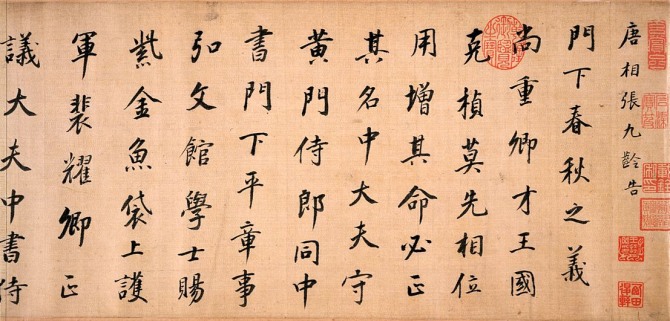 唐相張九齡告
門下春秋之義
尚重卿才王國
克楨莫先相位
用增其命必正
其名中大夫守
黃門侍郎同中
書門下平章事
弘文館學士賜
紫金魚袋上護
軍裴耀卿正
議大夫中書侍